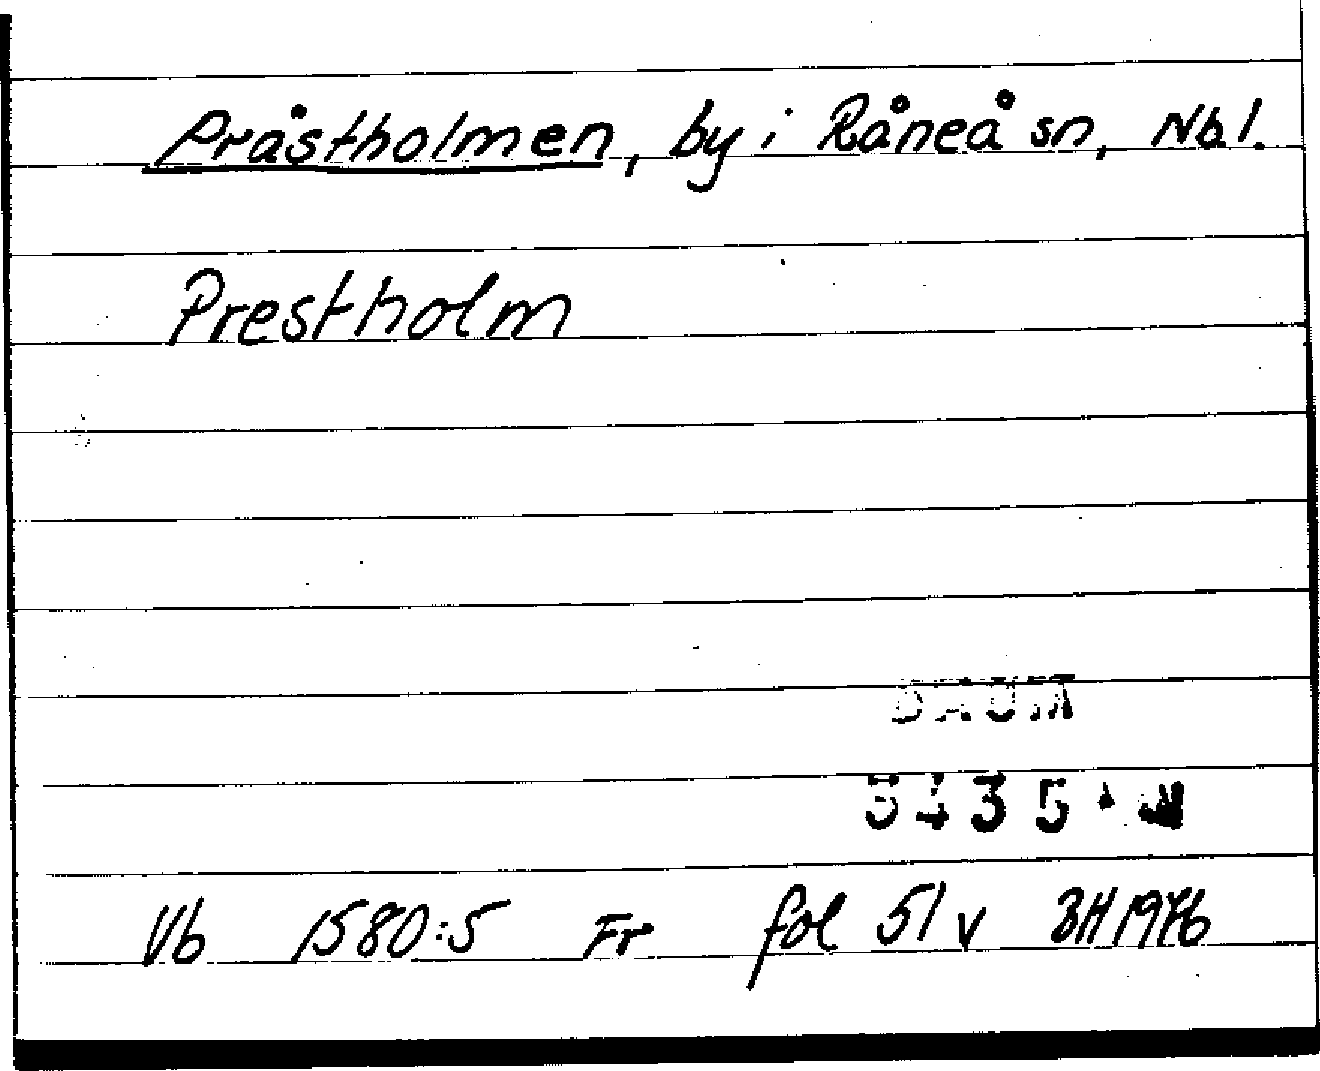 Prästholmen, by i Råneå sn, Nbl.
Prestholm
DAUM
Vb 1580:5 Fr fol 51 v BH 1976